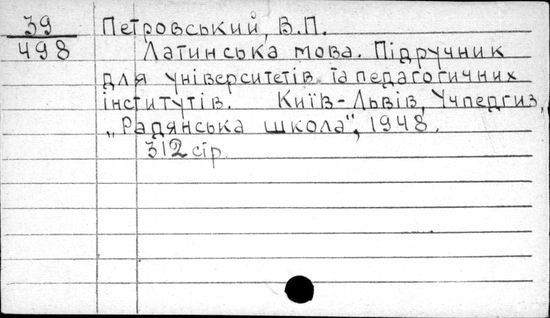 39 Петровський, В.П.
498 Латинська мова. Підручник
для університетів та педагогичних
інститутів. Київ-Львів, Учпедгиз,
„Радянська школа", 1948.
312 стр.